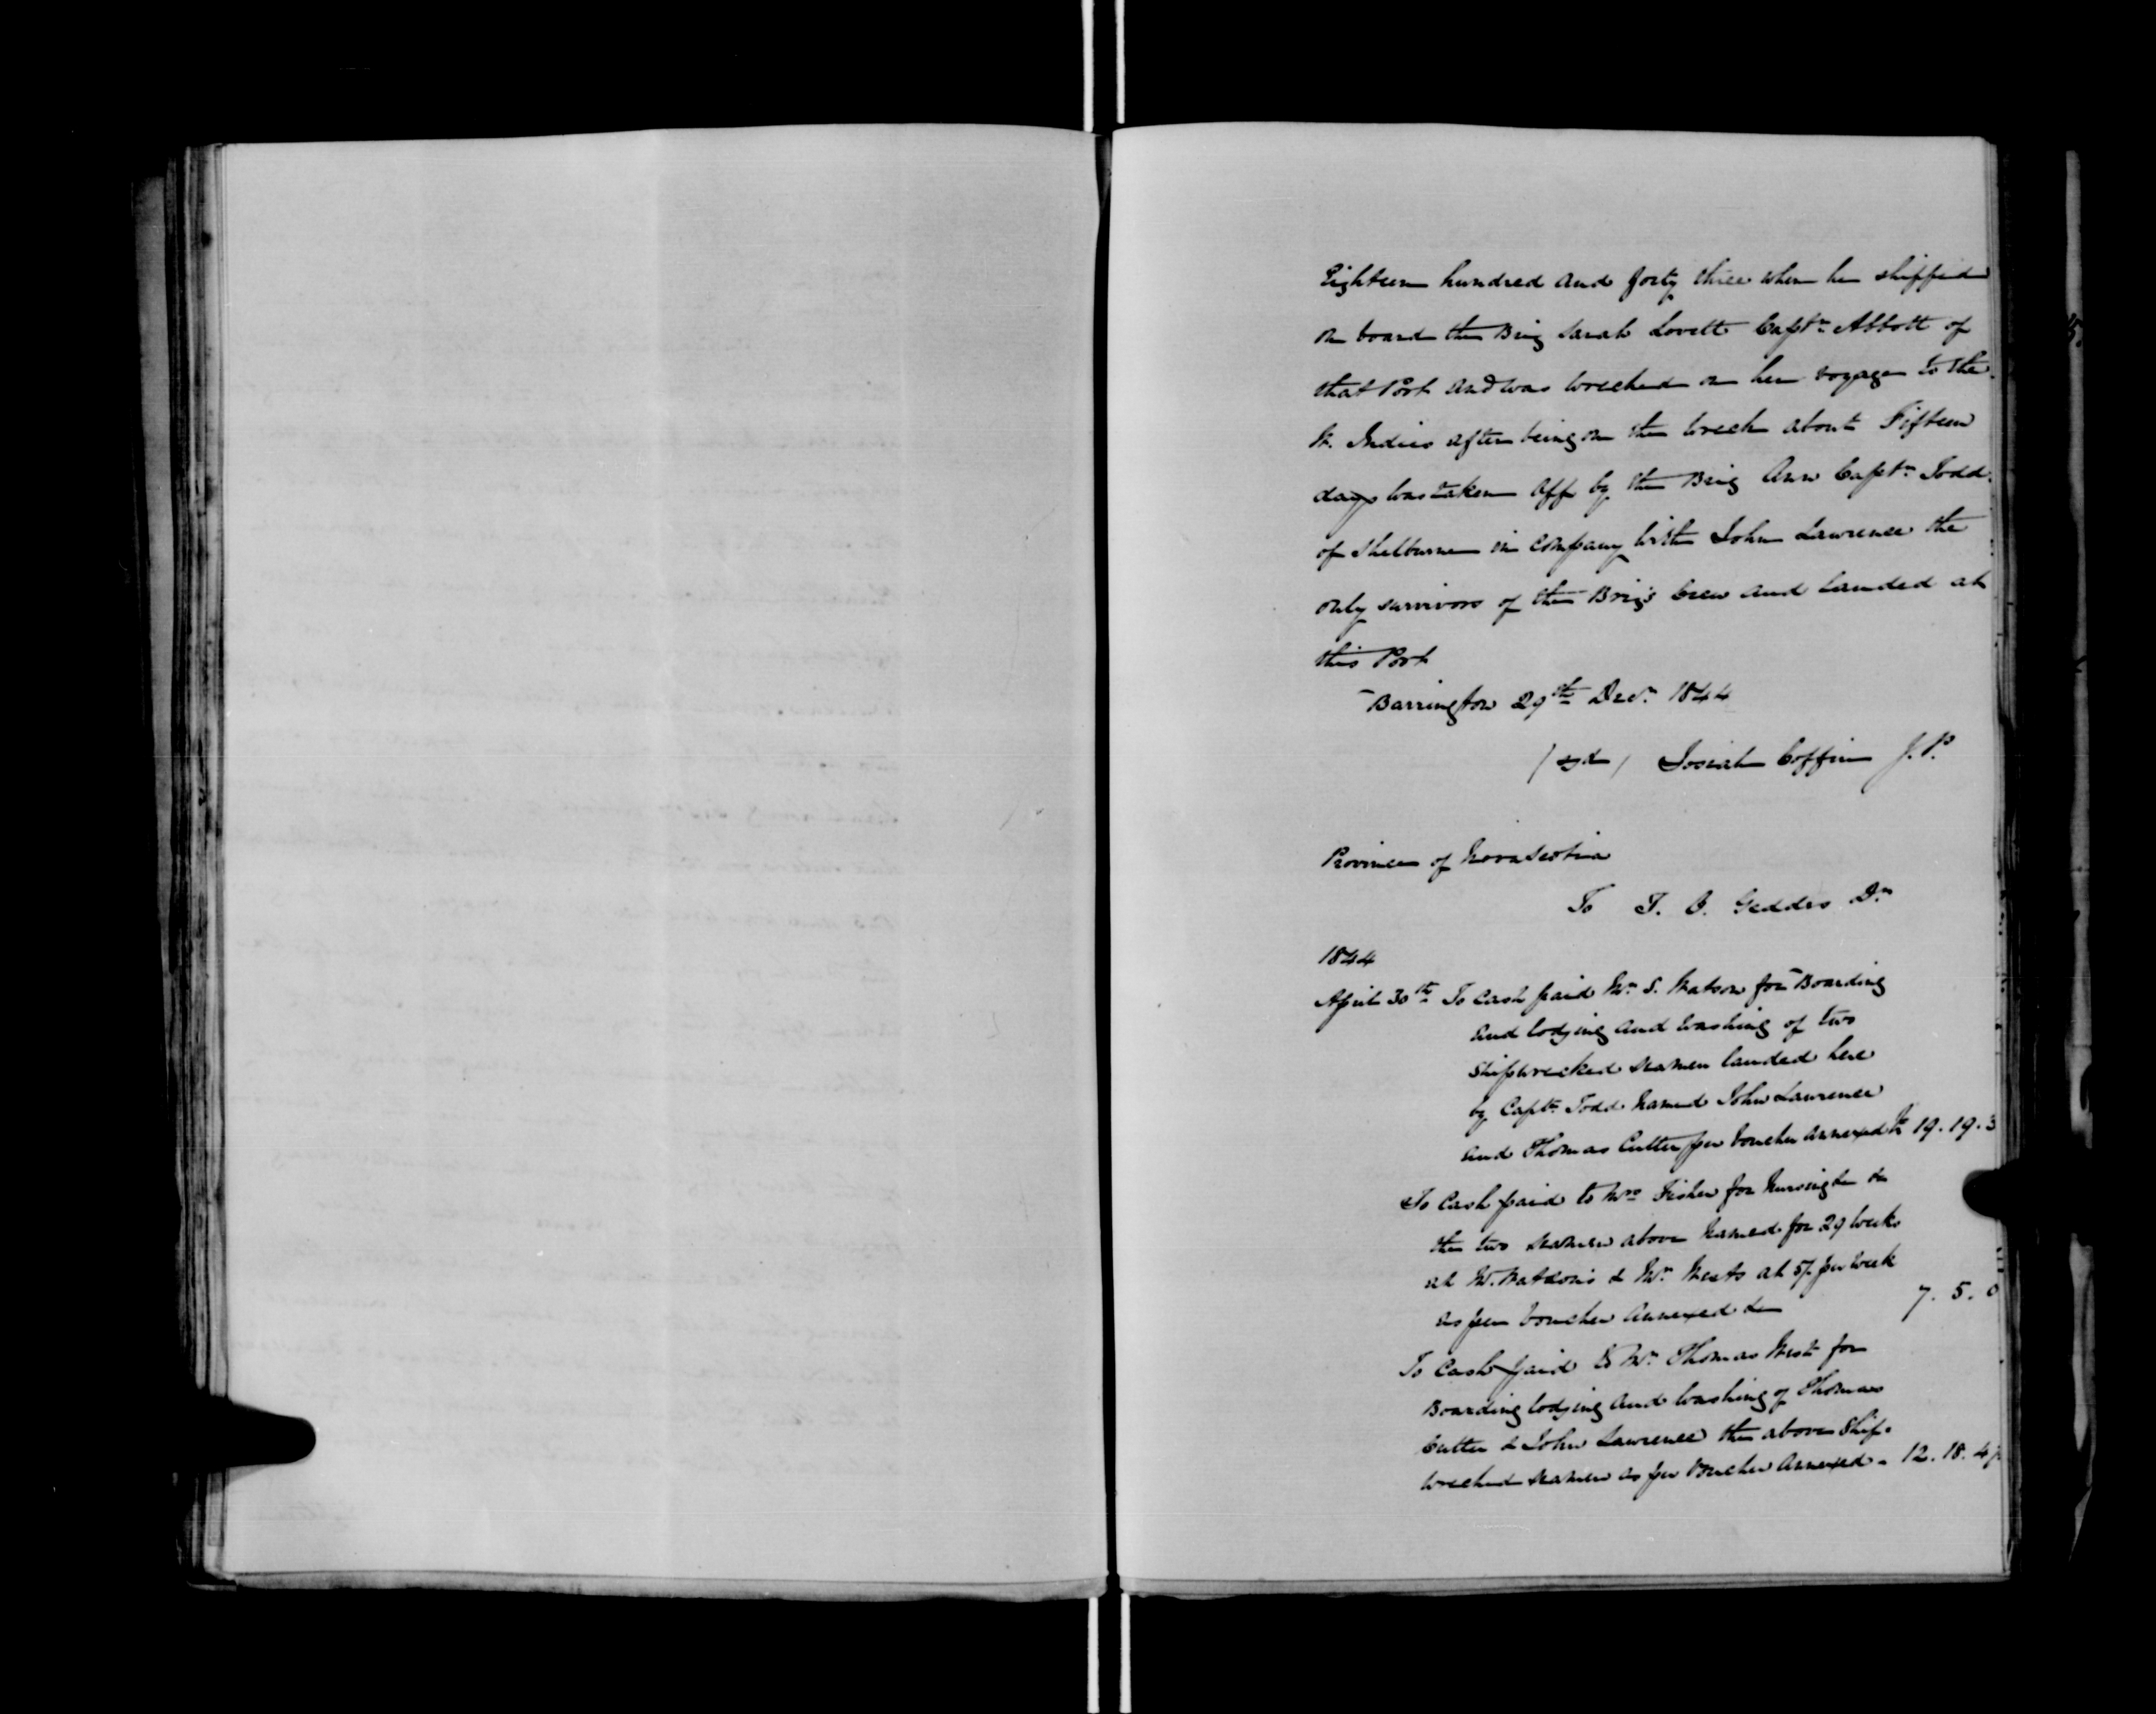 Eighteen hundred and forty three when he shipped
on board the Brig Sarah Lovett Captn Abbott of
that Port and was wrecked on her voyage to the
W. Indies after being on the wreck about Fifteen
days was taken off by the Brig Ann Captn Todd
of Shelburne in company with John Lawrence the
only survivors of the Brigs Crew and landed at
this Port
Barrington 29th Decr 1844
(sgd) Josiah Coffin J.P.
Province of Nova Scotia
To T. O. Geddes Dr
1844
April 30th To cash paid Mr S. Watson for Boarding
and lodging and washing of two
Shipwrecked seamen landed here
by Captn Todd named John Lawrence
and Thomas Cutter per voucher annexed 19.19.3
To Cash paid to Mrs Fisher for Nursing
the two seamen above named for 29 weeks
at Mr. Watson's & Mr Wests at 5/ per week
as per voucher annexed 7.5.0
To Cash paid to Mr Thomas West for
Boarding lodging and washing of Thomas
Cutter & John Lawrence the above Ship-
wrecked seamen as per voucher annexed - 12.18.4